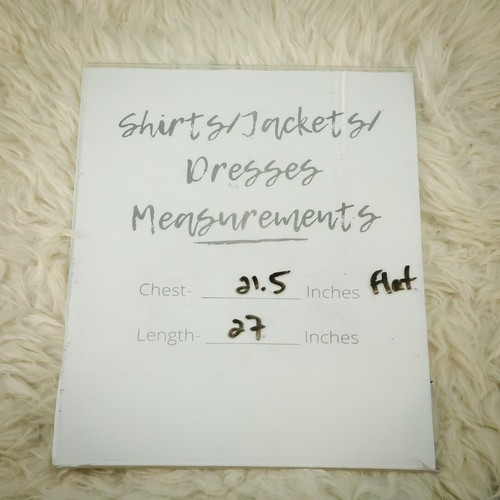 Shirts/Jackets/
Dresses
Measurements
Chest- 21.5 Inches Flat
Length- 27 Inches